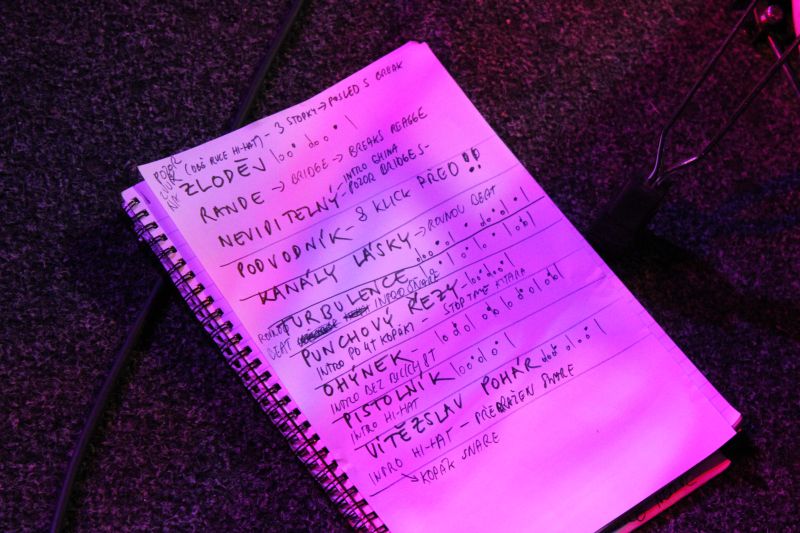 POZOR
(OBĚ RUCE HI-HAT) - 3 STOPKY → POSLED S BREAK
ZLODĚJ
RANDE → BRIDGE → BREAKS REAGGE
INTRO CHINA
NEVIDITELNÝ - POZOR BRIDGES -
PODVODNÍK - 8 KLICK PŘED !!
KANÁLY LÁSKY → ROVNOU BEAT
TURBULENCE
BEAT INTRO SNARE
PUNCHOVÝ ŘEZY
INTRO PO 4T KOPÁKU - STOPTIME KYTARA
OHÝNEK -
INTRO BEZ BICÍCH 8T
PISTOLNÍK
INTRO HI-HAT
VÍTĚZSLAV POHÁR
INTRO HI-HAT - PŘEDRAŽEN SNARE
→ KOPÁK SNARE